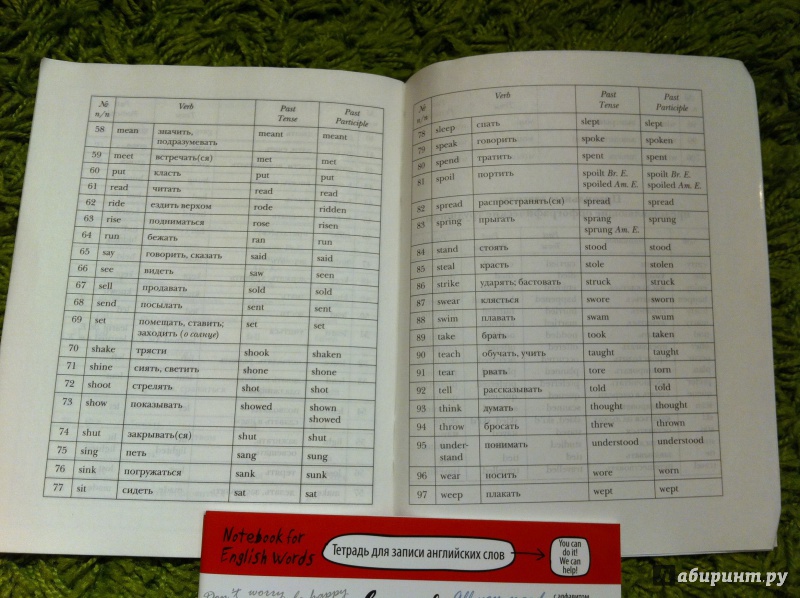 № п/п Verb Past Tense Past Participle
58 mean значить, подразумевать meant meant
59 meet встречать(ся) met met
60 put класть put put
61 read читать read read
62 ride ездить верхом rode ridden
63 rise подниматься rose risen
64 run бежать ran run
65 say говорить, сказать said said
66 see видеть saw seen
67 sell продавать sold sold
68 send посылать sent sent
69 set помещать, ставить; заходить (о солнце) set set
70 shake трясти shook shaken
71 shine сиять, светить shone shone
72 shoot стрелять shot shot
73 show показывать showed shown showed
74 shut закрывать(ся) shut shut
75 sing петь sang sung
76 sink погружаться sank sunk
77 sit сидеть sat sat
№ п/п Verb Past Tense Past Participle
78 sleep спать slept slept
79 speak говорить spoke spoken
80 spend тратить spent spent
81 spoil портить spoilt Br. E. spoilt Br. E.
spoiled Am. E. spoiled Am. E.
82 spread распространять(ся) spread spread
83 spring прыгать sprang sprung
sprung Am. E.
84 stand стоять stood stood
85 steal красть stole stolen
86 strike ударять; бастовать struck struck
87 swear клясться swore sworn
88 swim плавать swam swum
89 take брать took taken
90 teach обучать, учить taught taught
91 tear рвать tore torn
92 tell рассказывать told told
93 think думать thought thought
94 throw бросать threw thrown
95 under-stand понимать understood understood
96 wear носить wore worn
97 weep плакать wept wept
Notebook for
English Words
Тетрадь для записи английских слов
You can
do it!
We can
help!
Лабиринт.ру